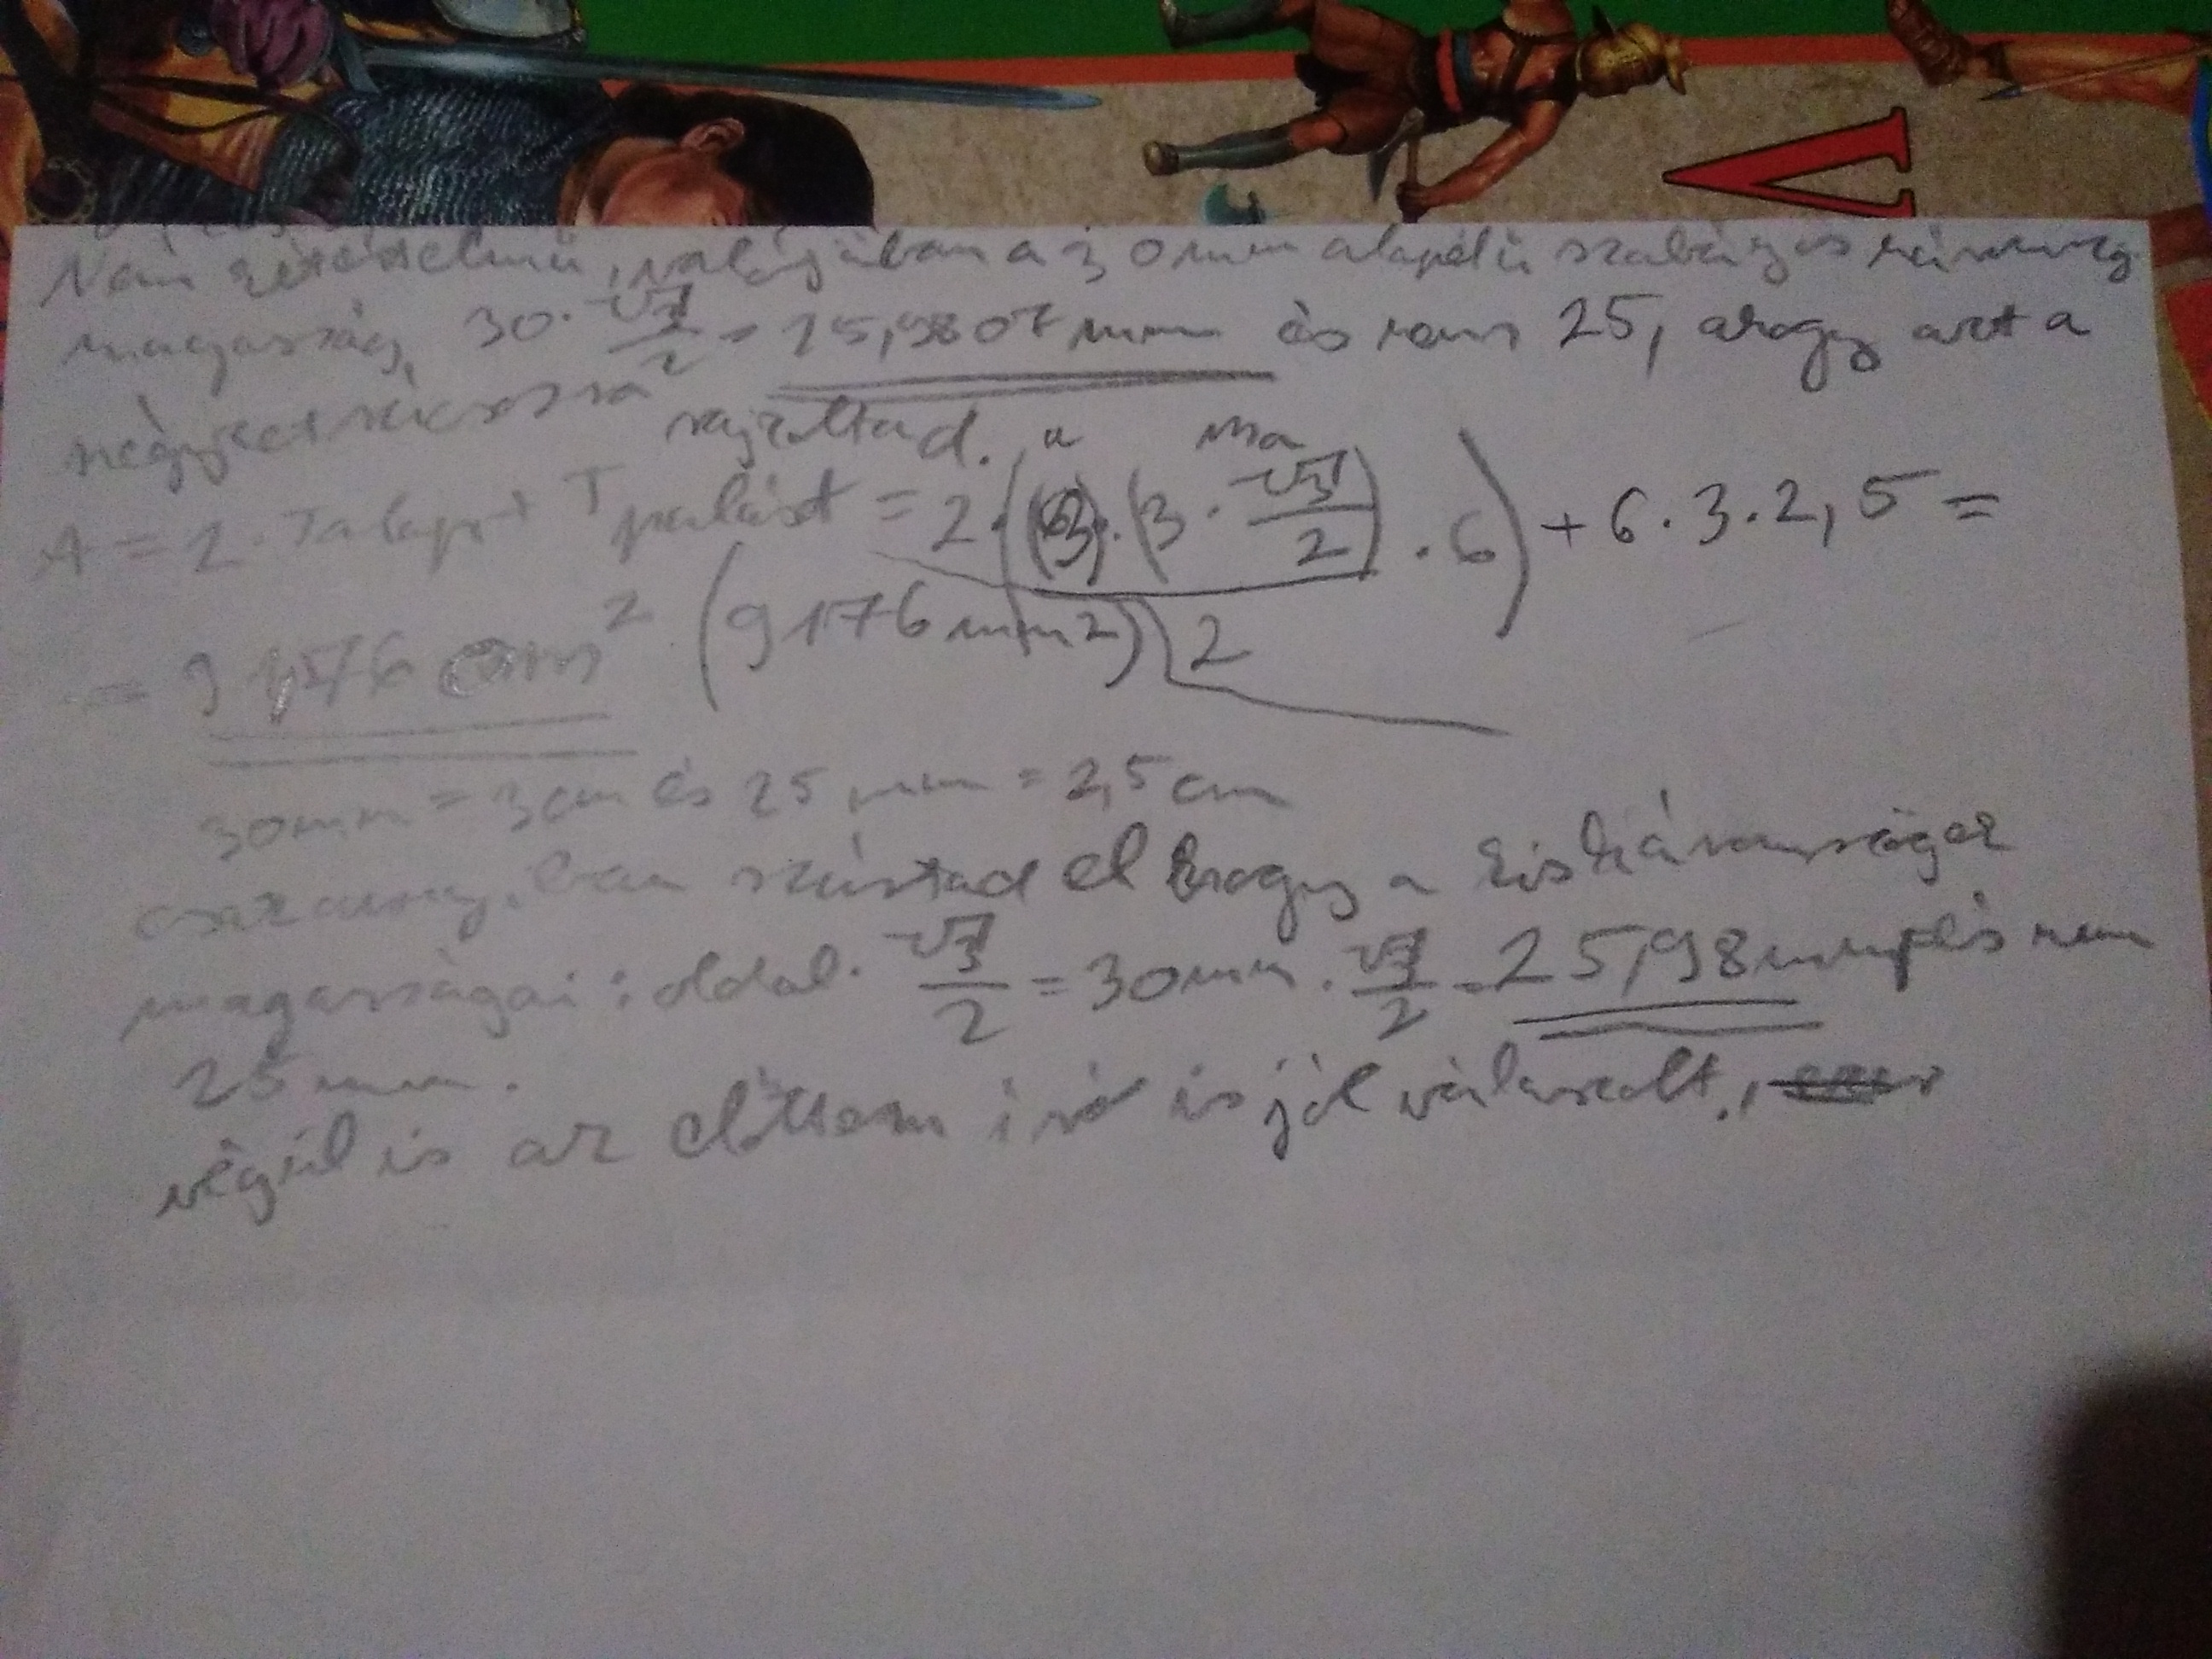 V
Nem értelmű, valójában a 30mm alapélű szabályos háromszög
magasság 30 · √3/2 = 25,9807 mm és nem 25, ahogy azt a
négyzetrácsossá
rajzoltad. a ma
A = 2 · Talap + Tpalást = 2 · ((3) · (3 · √3/2) / 2 · 6) + 6 · 3 · 2,5 =
= 91,76 cm² (9176 mm2)
30mm = 3cm és 25 mm = 2,5 cm
csak annyiban számtad el hogy a kis háromszögek
magasságai : oldal · √3/2 = 30mm · √3/2 = 25,98mm és nem
25 mm.
végül is az előttem író is jól válaszolt.,